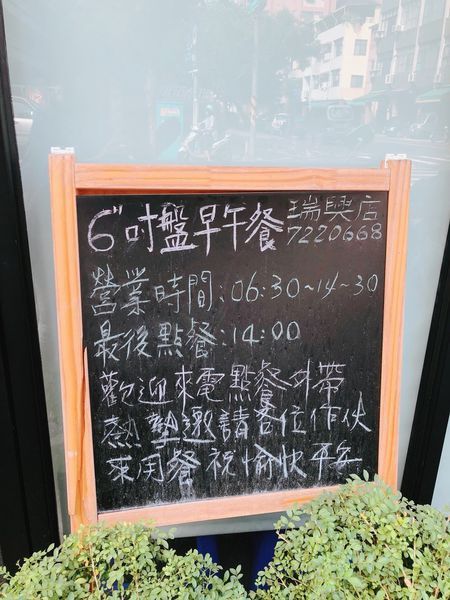 6"吋盤早午餐 瑞興店
7220668
營業時間:06:30~14-30
最後點餐:14:00
歡迎來電點餐外帶
熱塾邀請各位作伙
來用餐 祝愉快平安